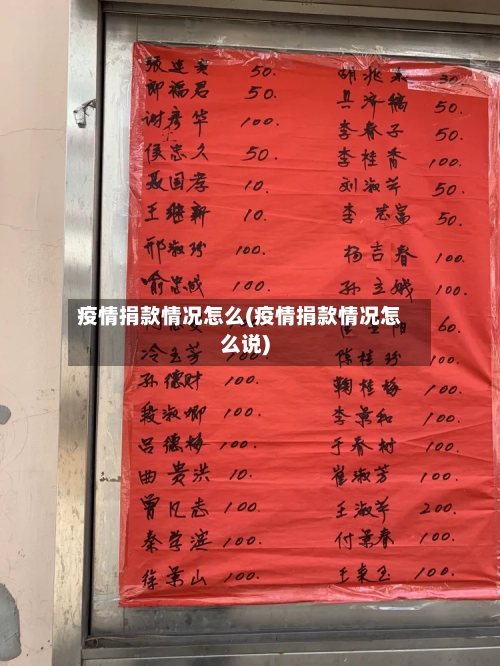 张连贵 50. 胡兆来 30
邵福君 50. 吴济稿 50.
谢彦华 100. 李春子 50.
侯忠久 50. 李桂香 100.
聂国孝 10. 刘淑芹 50.
王继新 10. 李志富 50.
邢淑珍 100. 杨吉春 100.
喻忠成 100. 孙立娥 100.
疫情捐款情况怎么(疫情捐款情况怎
60.
么说)
冷玉芳 100. 陈桂珍 100.
孙德财 100. 鞠桂梅 100.
段淑卿 100. 李景和 100.
吕德梅 100. 于春树 100.
曲贵洪 10. 崔淑芳 100.
曾凡志 100. 王淑华 200.
秦学滨 100. 付景春 100.
徐景山 100. 王来玉 100.